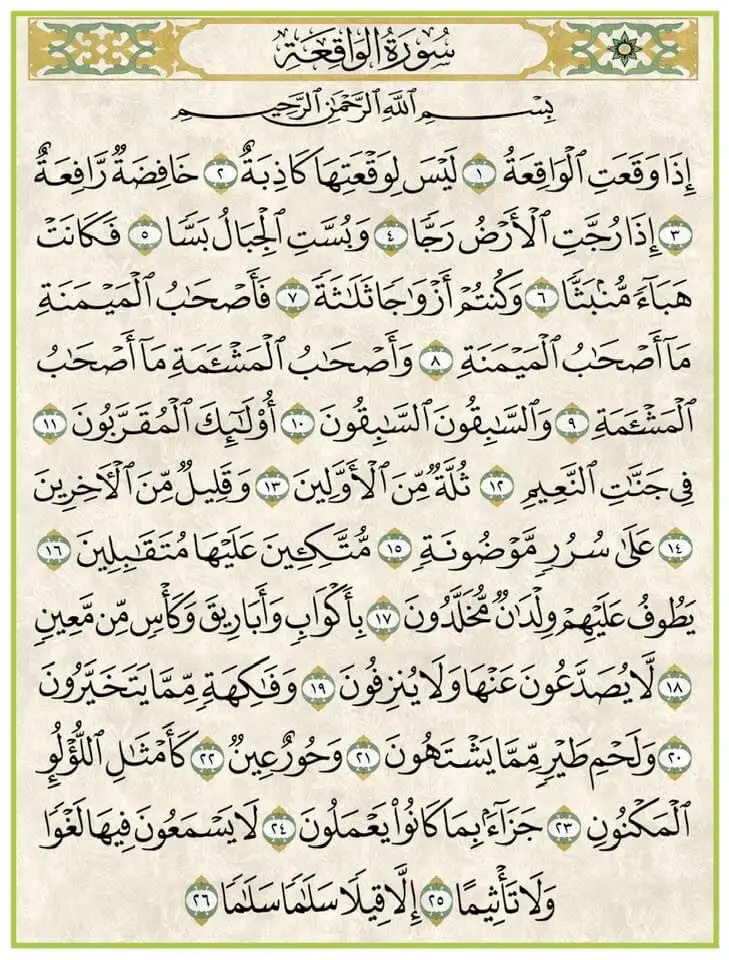 سُورَةُ الْوَاقِعَةِ
بِسْمِ اللَّهِ الرَّحْمَٰنِ الرَّحِيمِ
إِذَا وَقَعَتِ ٱلْوَاقِعَةُ ١ لَيْسَ لِوَقْعَتِهَا كَاذِبَةٌ ٢ خَافِضَةٌ رَّافِعَةٌ
٣ إِذَا رُجَّتِ ٱلْأَرْضُ رَجًّا ٤ وَبُسَّتِ ٱلْجِبَالُ بَسًّا ٥ فَكَانَتْ
هَبَآءً مُّنۢبَثًّا ٦ وَكُنتُمْ أَزْوَٰجًا ثَلَٰثَةً ٧ فَأَصْحَٰبُ ٱلْمَيْمَنَةِ
مَآ أَصْحَٰبُ ٱلْمَيْمَنَةِ ٨ وَأَصْحَٰبُ ٱلْمَشْـَٔمَةِ مَآ أَصْحَٰبُ
ٱلْمَشْـَٔمَةِ ٩ وَٱلسَّٰبِقُونَ ٱلسَّٰبِقُونَ ١٠ أُو۟لَٰٓئِكَ ٱلْمُقَرَّبُونَ ١١
فِى جَنَّٰتِ ٱلنَّعِيمِ ١٢ ثُلَّةٌ مِّنَ ٱلْأَوَّلِينَ ١٣ وَقَلِيلٌ مِّنَ ٱلْـَٔاخِرِينَ
١٤ عَلَىٰ سُرُرٍ مَّوْضُونَةٍ ١٥ مُّتَّكِـِٔينَ عَلَيْهَا مُتَقَٰبِلِينَ ١٦
يَطُوفُ عَلَيْهِمْ وِلْدَٰنٌ مُّخَلَّدُونَ ١٧ بِأَكْوَابٍ وَأَبَارِيقَ وَكَأْسٍ مِّن مَّعِينٍ
١٨ لَّا يُصَدَّعُونَ عَنْهَا وَلَا يُنزِفُونَ ١٩ وَفَٰكِهَةٍ مِّمَّا يَتَخَيَّرُونَ
٢٠ وَلَحْمِ طَيْرٍ مِّمَّا يَشْتَهُونَ ٢١ وَحُورٌ عِينٌ ٢٢ كَأَمْثَٰلِ ٱللُّؤْلُؤِ
ٱلْمَكْنُونِ ٢٣ جَزَآءًۢ بِمَا كَانُوا۟ يَعْمَلُونَ ٢٤ لَا يَسْمَعُونَ فِيهَا لَغْوًا
وَلَا تَأْثِيمًا ٢٥ إِلَّا قِيلًا سَلَٰمًا سَلَٰمًا ٢٦